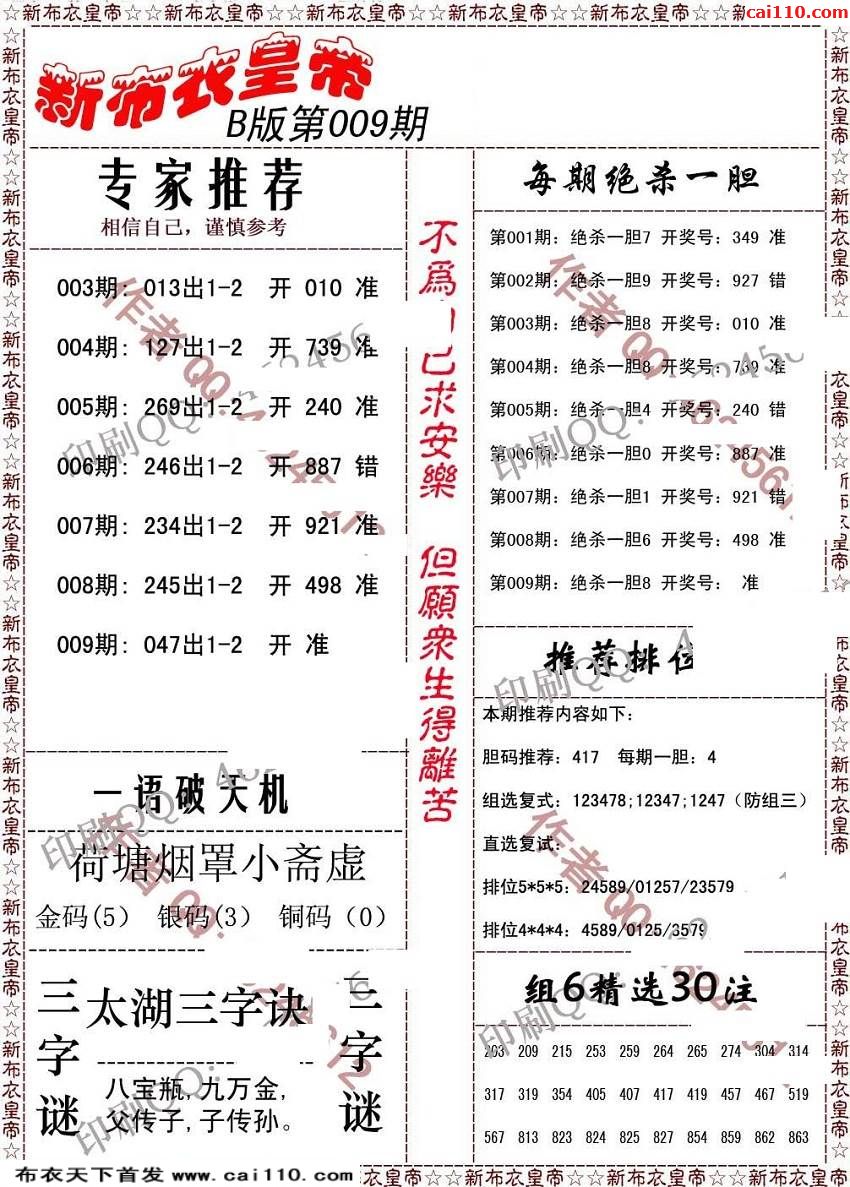 ☆新布衣皇帝☆☆新布衣皇帝☆☆新布衣皇帝☆☆新布衣皇帝☆☆新布衣皇帝☆☆
cai110.com
新布衣皇帝
B版第009期
专家推荐
相信自己，谨慎参考
003期: 013出1-2 开 010 准
004期: 127出1-2 开 739 准
005期: 269出1-2 开 240 准
006期: 246出1-2 开 887 错
007期: 234出1-2 开 921 准
008期: 245出1-2 开 498 准
009期: 047出1-2 开 准
一语破天机
荷塘烟罩小斋虚
金码(5) 银码(3) 铜码（0）
三字谜
太湖三字诀
八宝瓶,九万金,
父传子,子传孙。
三字谜
不爲自己求安樂 但願衆生得離苦
每期绝杀一胆
第001期: 绝杀一胆7 开奖号: 349 准
第002期: 绝杀一胆9 开奖号: 927 错
第003期: 绝杀一胆8 开奖号: 010 准
第004期: 绝杀一胆8 开奖号: 739 准
第005期: 绝杀一胆4 开奖号: 240 错
第006期: 绝杀一胆0 开奖号: 887 准
第007期: 绝杀一胆1 开奖号: 921 错
第008期: 绝杀一胆6 开奖号: 498 准
第009期: 绝杀一胆8 开奖号: 准
推荐排位
本期推荐内容如下:
胆码推荐: 417 每期一胆: 4
组选复式: 123478;12347;1247（防组三）
直选复试:
排位5*5*5: 24589/01257/23579
排位4*4*4: 4589/0125/3579
组6精选30注
203 209 215 253 259 264 265 274 304 314
317 319 354 405 407 417 419 457 467 519
567 813 823 824 825 827 854 859 862 863
布衣天下首发 www.cai110.com
衣皇帝☆☆新布衣皇帝☆☆新布衣皇帝☆☆新布衣皇帝☆